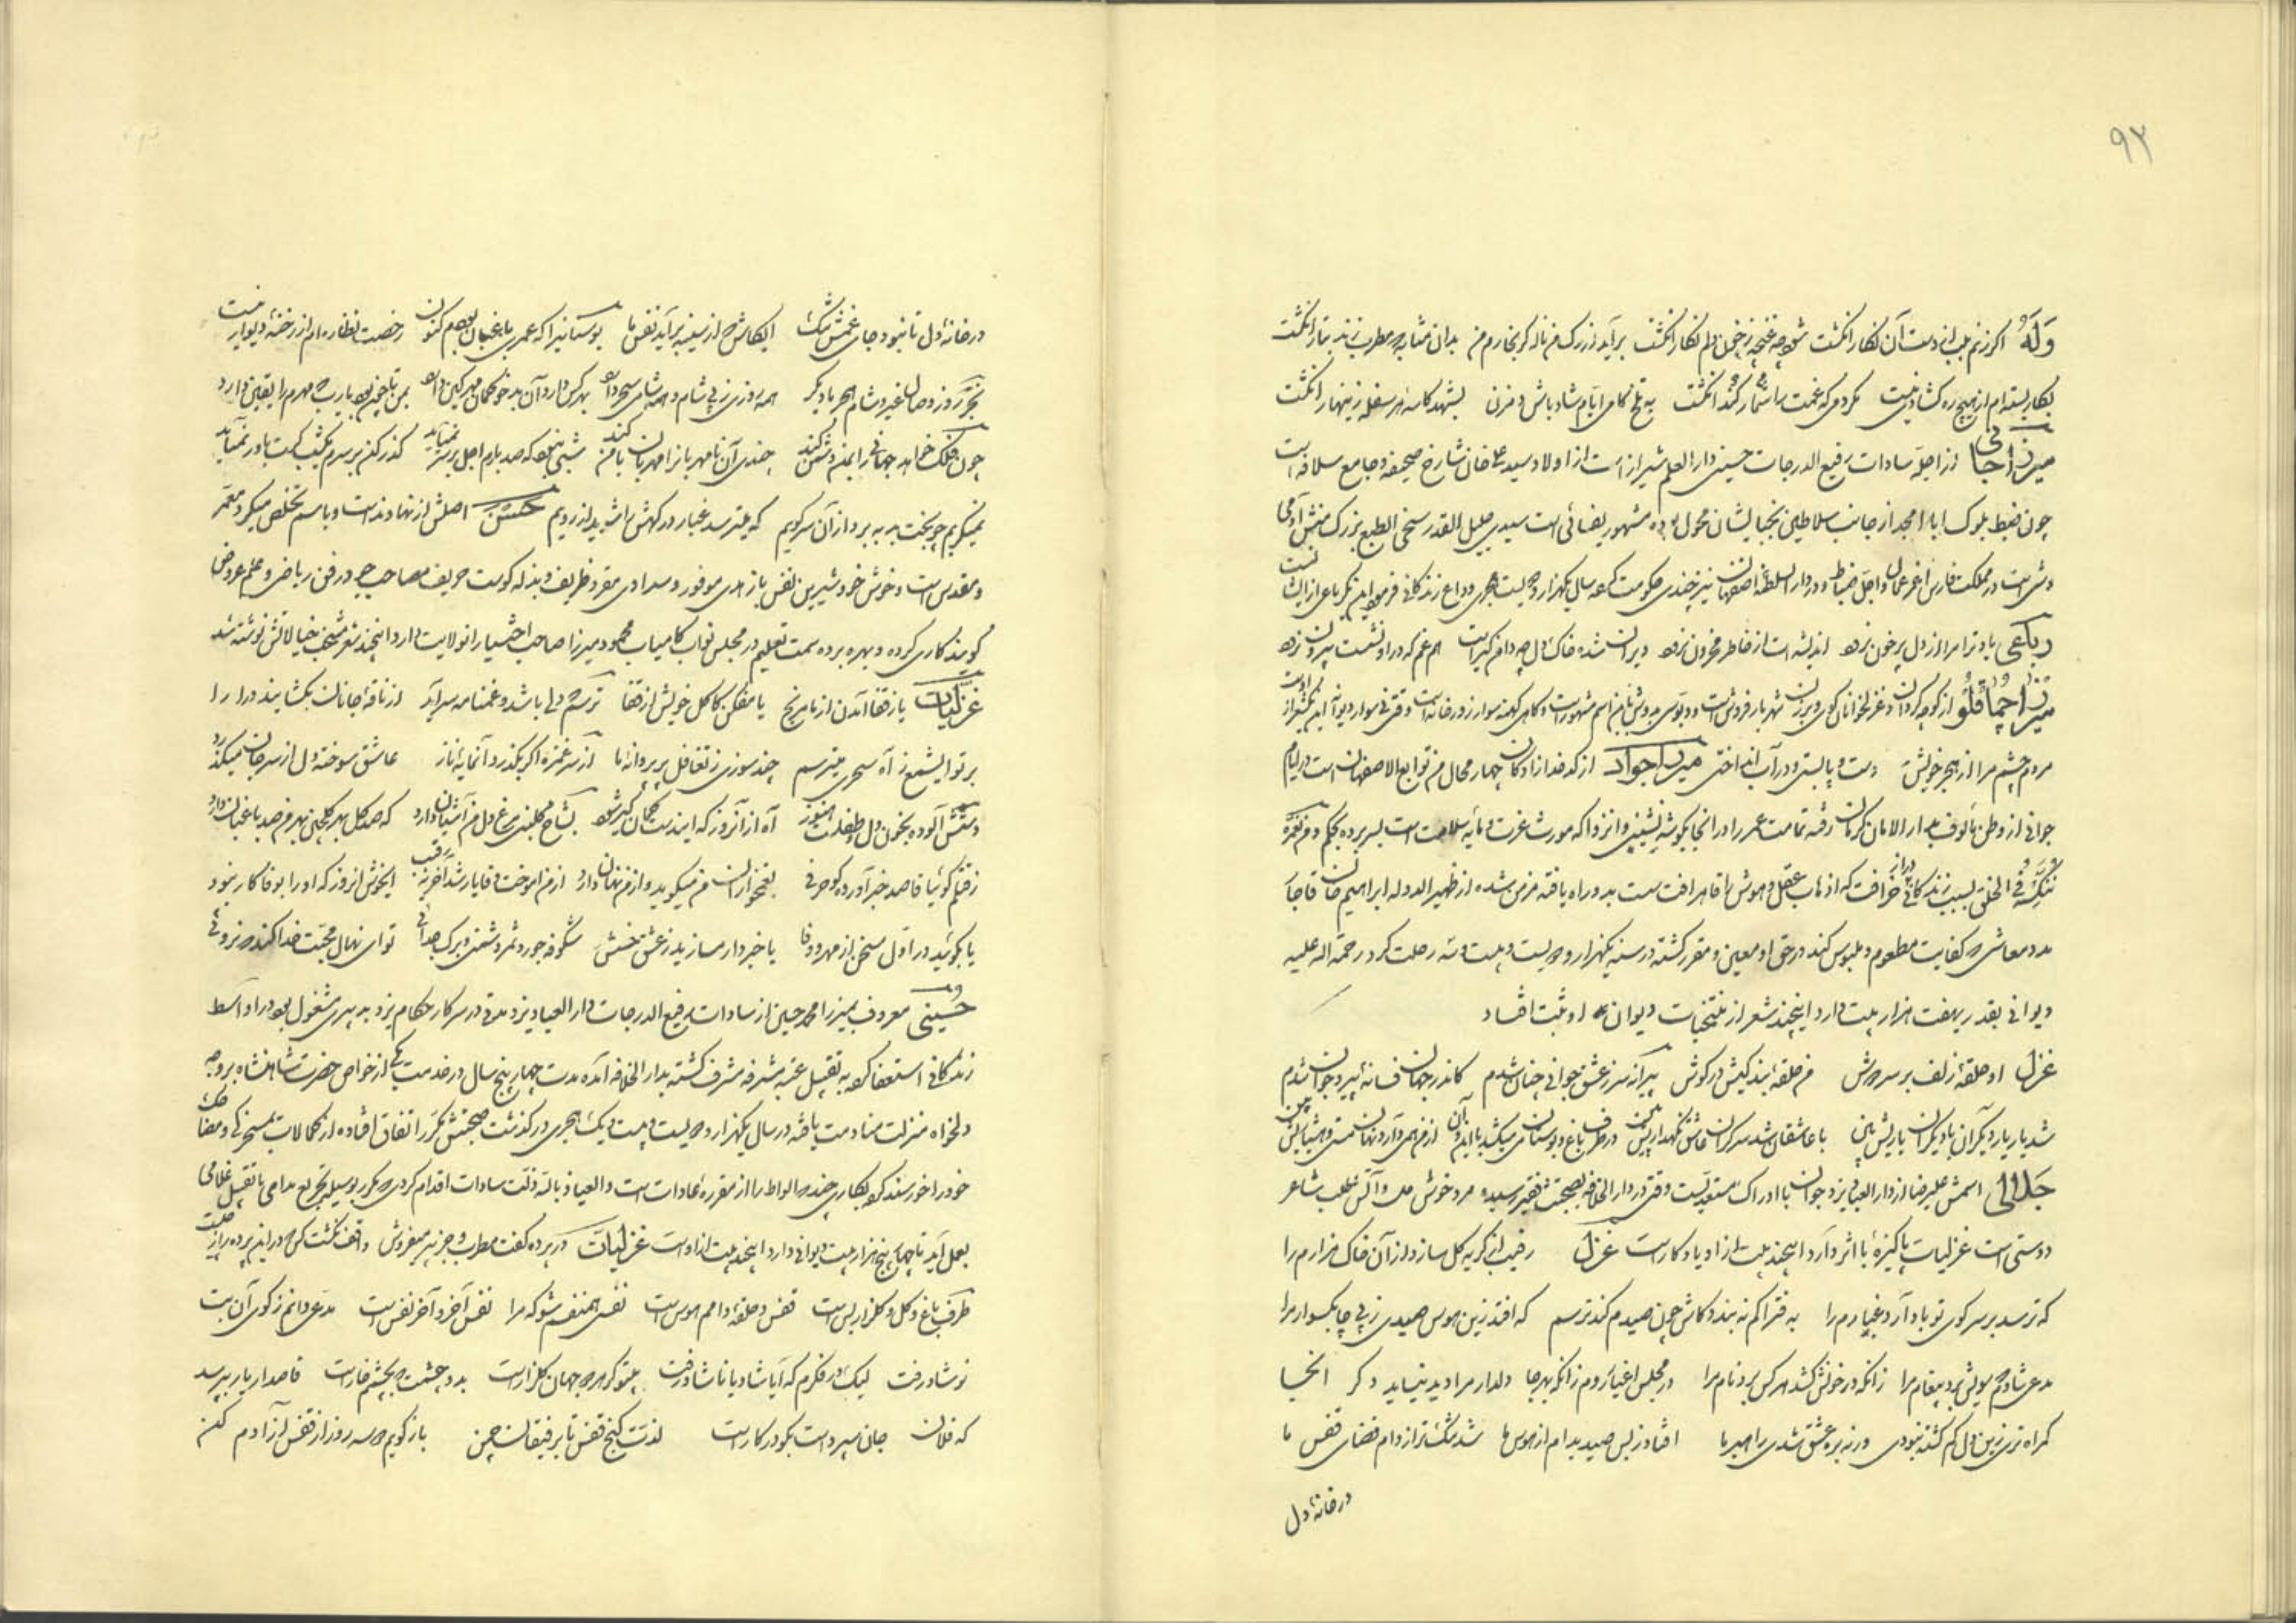 ۹۲
وَلَهُ اگر زنم بلب از دست آن نگار انگشت شود چه غنچه ز خون دلم نگار انگشت برآید از رگ من ناله گر بخارم من بدان مثابه که مطرب زند بتار انگشت
بکار بسته‌ام از هیچ ره گشادی نیست مکرد می که غمت را شمار کند انگشت به تلخ کامی ایام شاد باش و مزن بشهد کاسه هر سفله زینهار انگشت
میرزا جانی از اجله سادات رفیع الدرجات حسینی دار العلم شیراز است از اولاد سید علی خان شارح صحیفه و جامع سلافه است
چون ضبط بلوک ابا و امجد از جانب سلاطین بنجبا ایشان محول بوده مشهور بفسائی است سیدی جلیل القدر سخی الطبع بزرگ منش آدمی
وش است در مملکت فارس اغر عمال و اجل ضباط و در دار السلطنه اصفهان نیز چندی حکومت کرده سال یکهزار و دویست هجری وداع زندگانی فرموده این رباعی از ایشان است
رباعی یاد تو مرا از دل پر خون نرود اندیشه‌ات از خاطر محزون نرود ویران شده خاک دل چه دامن گیر است هر غم که در او نشست بیرون نرود
میرزا چماقلو از کوچه گردان و غزلخوانان کوی و برزن شهر بارفروش است و دیوسی بدوش باین اسم مشهور است و گاهی کهنه سوار زورخانه است وقتی سوار دیوانه این یکشعر از اوست
مردم چشم مرا از هجر خویش دست و پا بستی و در آب انداختی میرزا جواد از کدخدازادگان چهار محال من توابع الاصفهان است در ایام
جوانی از وطن مألوف بدار الامان کرمان رفته تمامت عمر را در آنجا بگوشه نشینی و انزوا که مورث عزت و مایه سلامت است بسر برده بحکم و من نعمره
ننکسه فی الخلق بسبب زندگانی دراز خرافت که اذهاب عقل و هوش را قاهر آفت است بدو راه یافته مزمن شده از ظهیر الدوله ابراهیم خان قاجار
مدد معاشی که کفایت مطعوم و ملبوس کند در حق او معین و مقرر گشته در سنه یکهزار و دویست و بیست و سه رحلت کرد رحمة الله علیه
دیوانی بقدر هفت هزار بیت دارد اینچند شعر از منتخبات دیوان او ثبت افتاد
غزل او حلقه زلف بر سر دوش من حلقه بندگیش در گوش پیرانه سر ز عشق جوانی چنان شدم کاندر جهان فسانه پیر و جوان شدم
شد یار یار دیگران با دیگران یاریش بین با عاشقان شد سرگران عاشق نگهداریش بین در طرف باغ و بوستان می میکشد با این و آن از من همی دارد نهان مستی و هشیاریش بین
جلالی اسمش علیرضا از دار العباد یزد جوان با ادراک مستعدیست وقتی در دار الخلافه بصحبت فقیر رسیده مرد خوش ملاقات طلب شاعر
دوستی است غزلیات پاکیزه با اثر دارد اینچند بیت از او یادگار است غزل رقیب از گریه گل سازد از آن خاک مزارم را
که ترسد بر سر کوی تو باد آرد غبارم را به فتراکم نه بندد کاش چون صیدم کند ترسم که افتد زین هوس صیدی ز پی چابکسوار مرا
مدعی شادم که سویش برد پیغام مرا زانکه در خونش کشد هر کس برد نام مرا در مجلس اغیار روم زانکه بهر جا دلدار مرا دید نیاید دگر آنجا
گمراه تری زین دل گم گشته نبودی ورنه بره عشق شدی راهبر ما افتاد ز بس صید بدام از هوس ما شد تنگ‌تر از دام فضای قفس ما
در خانه دل
در خانه دل تا نبود جای غمش تنگ ایکاش که از سینه برآید نفس ما بوستانیرا که عمری باغبان بودم کنون رخصت نظاره‌ام از رخنه دیوار نیست
بجز روز وصال غیر و شام هجر ما دیگر همه روزی ز پی شام و همه شامی سحر دارد بهر کس دارد آن بدخو گمان مهر کین دارد بمن تا چون بود یارب که مهرم را یقین دارد
چون فلک خواهد جهانی را بمن دشمن کند چندی آن نامهربانرا مهربان با من کند شبی نبود که صد بارم اجل بر سر نمیآید گذر کن بر سرم یکشب گرت باور نمیآید
نمیگریم چو بخت بد برد از آن سر کویم که میترسد غبار درگهش را شوید از رویم حسن اصلش از نهاوند است و باسم تخلص میکرد معمر
و مقدس است و خوش خو و شیرین نفس با زهدی موفور و سدادی مقرر ظریف و بذله گوست حریف مصاحب جو در فن ریاضی و علم عروض
گویند کاری کرده و بهره برده سمت تعلیم در مجلس نواب کامیاب محمود میرزا صاحب اختیار آنولایت دارد اینچند شعر منتخب خیالاتش نوشته شد
غزلیات یا ز قفا آمدن از ما مرنج یا مفکن کاکل خویش از قفا ترسم که دلی باشد و غمنامه سرآید از ناقه جانان بگشایید درا را
بر تو ای شمع ز آه سحری میترسم چند سوزی ز تغافل پر پروانه ما از سر غمزه اگر بگذرد آنمایه ناز عاشق سوخته دل از سر جان میگذرد
دستش آلوده بخون دل و طفلست هنوز آه از آنروز که ایندست کمان گیر شود بشاخ گلبنی مرغ دل من آشیان دارد که صد گل بهر گلچین بهر من صد باغبان دارد
رفتم گوئیا قاصد خبر آورده کو حرفی بغمخواران من میگوید و از من نهان دارد از من آموخت وفا یار شد آخر برقیب ایخوش آنروز که او را بوفا کار نبود
یا مگوئید در اول سخن از مهر و وفا یا خبردار مسازید ز عشق منش شکوفه جور و ثمر دشمنی و برگ جدائی تو ای نهال محبت خدا کند که نروئی
حسینی معروف بمیرزا محمد حسین از سادات رفیع الدرجات دار العباد یزد مدتی در سرکار حکام یزد بدبیری مشغول بود در اواسط
زندگانی استعفا کرده به تقبیل عتبه مشرفه مشرف گشته بدار الخلافه آمده مدت چهار پنج سال در خدمت یکی از خواص حضرت شاهنشاه بروجه
دلخواه منزلت منادمت یافته در سال یکهزار و دویست و بیست و یک هجری درگذشت صحبتش مکرر اتفاق افتاده از کمالات
خود را خورسند کرده بکاری چند
بعمل آید تا چهار پنج هزار بیت دیوانی دارد اینچند بیت از اوست غزلیات در پرده گفت مطرب و جز نیز میفروش واقف نگشت کس که در این پرده راز چیست
طرف باغ و گل و گلزار بس است قفس و حلقه دامم هوس است نفسی همنفسم شو که مرا نفس آخر و آخر نفس است مدعی دانم ز کوی آن بت
نوشاد رفت لیک در فکرم که آیا شاد یا ناشاد رفت بیتو گر همه جهان گلزار است بدو چشمت که بچشمم خار است قاصد ار یار بپرسد
که فلان جان سپرده‌است بگو در کار است لذت کنج قفس تا برفیقان چمن باز گویم دو سه روز از قفس آزادم کن